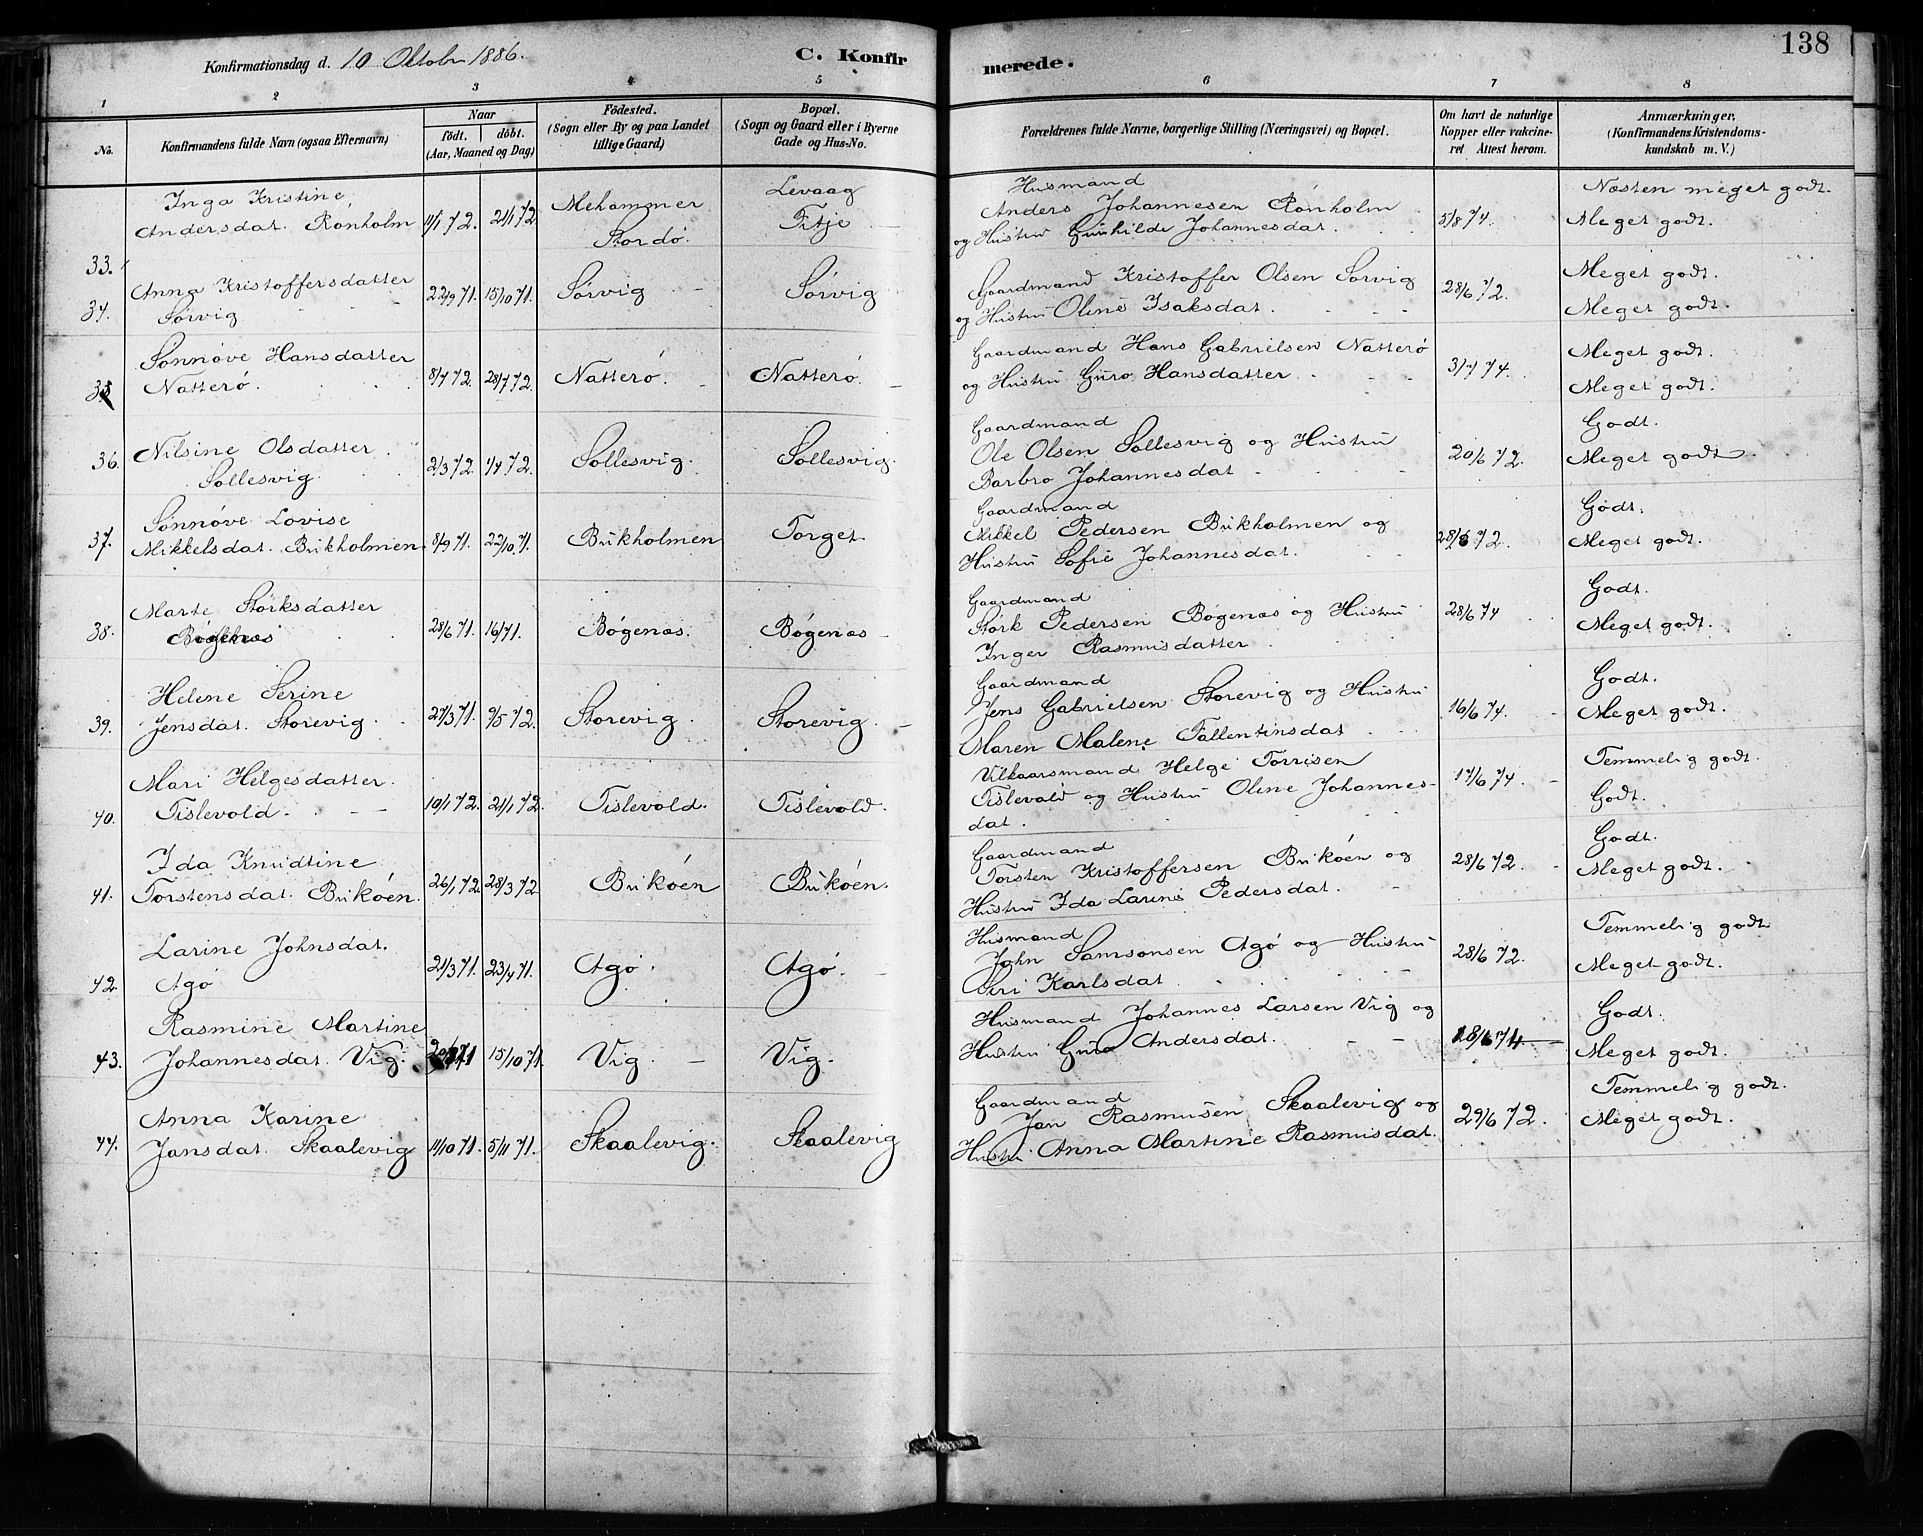 138
Konfirmationsdag d. 10 Oktober 1886.
C. Konfirmerede.
1 2 3 4 5 6 7 8
No.
Konfirmandens fulde Navn (ogsaa Efternavn)
Naar
födt. döbt.
(Aar, Maaned og Dag)
Födested.
(Sogn eller By og paa Landet
tillige Gaard)
Bopæl.
(Sogn og Gaard eller i Byerne
Gade og Hus-No.
Forældrenes fulde Navne, borgerlige Stilling (Næringsvei) og Bopæl.
Om havt de naturlige
Kopper eller vakcine-
ret. Attest herom.
Anmærkninger.
(Konfirmandens Kristendoms-
kundskab m. V.)
33.
Inga Kristine
Andersdat. Rönholm
11/1 72. 21/1 72.
Mehammer
Stordö.
Levaag
Fitje
Husmand
Anders Johannesen Rönholm
og Hustru Gunhilde Johannesdat.
5/8 74.
Næsten meget godt.
Meget godt.
34.
Anna Kristoffersdatter
Sörvig
22/9 71. 15/10 71.
Sörvig
Sörvig
Gaardmand Kristoffer Olsen Sörvig
og Hustru Oline Isaksdat.
28/6 72.
Meget godt.
Meget godt.
35
Sönnöve Hansdatter
Natterö.
8/7 72. 28/7 72.
Natterö.
Natterö.
Gaardmand Hans Gabrielsen Natterö
og Hustru Guro Hansdatter
3/7 74.
Meget godt.
Meget godt.
36.
Nilsine Olsdatter
Sollesvig.
2/3 72. 1/4 72.
Sollesvig.
Sollesvig.
Gaardmand
Ole Olsen Sollesvig og Hustru
Barbro Johannesdat
20/6 72.
Godt.
Meget godt.
37.
Sönnöve Lovise
Mikkelsdat. Bukholmen
8/9 71. 22/10 71.
Bukholmen
Torget
Gaardmand
Mikkel Pedersen Bukholmen og
Hustru Sofie Johannesdat.
28/6 72.
Godt.
Meget godt.
38.
Marte Störksdatter
Bögenæs
28/6 71. 16/7 71.
Bögenæs.
Bögenæs
Gaardmand
Störk Pedersen Bögenæs og Hustru
Inger Rasmusdatter
28/6 74
Godt.
Meget godt.
39.
Helene Serine
Jensdat. Storevig
27/3 71. 9/5 72.
Storevig.
Storevig.
Gaardmand
Jens Gabrielsen Storevig og Hustru
Maren Malene Fallentinsdat
16/6 74.
Godt.
Meget godt.
40.
Mari Helgesdatter.
Tislevold.
10/1 72. 21/1 72.
Tislevold.
Tislevold.
Vilkaarsmand Helge Torrisen
Tislevold og Hustru Oline Johannes-
dat.
17/6 74.
Temmelig godt.
Godt.
41.
Ida Knudtine
Torstensdat. Buköen.
26/1 72. 28/3 72.
Buköen
Buköen.
Gaardmand
Torsten Kristoffersen Buköen og
Hustru Ida Larine Pedersdat.
28/6 72.
Godt.
Meget godt.
42.
Larine Johnsdat.
Agö
21/3 71. 23/4 71.
Agö.
Agö.
Husmand
John Samsonsen Agö og Hustru
Siri Karlsdat
28/6 72.
Temmelig godt
Meget godt.
43.
Rasmine Martine
Johannesdat. Vig.
15/10 71.
Vig.
Vig.
Husmand Johannes Larsen Vig og
Hustru Guro Andersdat.
18/6 74
Godt.
Meget godt.
44.
Anna Karine
Jansdat. Skaalevig
11/10 71. 5/11 71.
Skaalevig.
Skaalevig
Gaardmand
Jan Rasmusen Skaalevig og
Hustru Anna Martine Rasmusdat.
29/6 72.
Temmelig godt.
Meget godt.